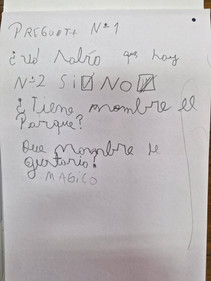 PREGUNTA Nº 1
¿Ud Sabío que hay
Nº 2 Si NO
¿Tiene nombre el
Parque?
Que Nombre le
gustario?
MAGICO